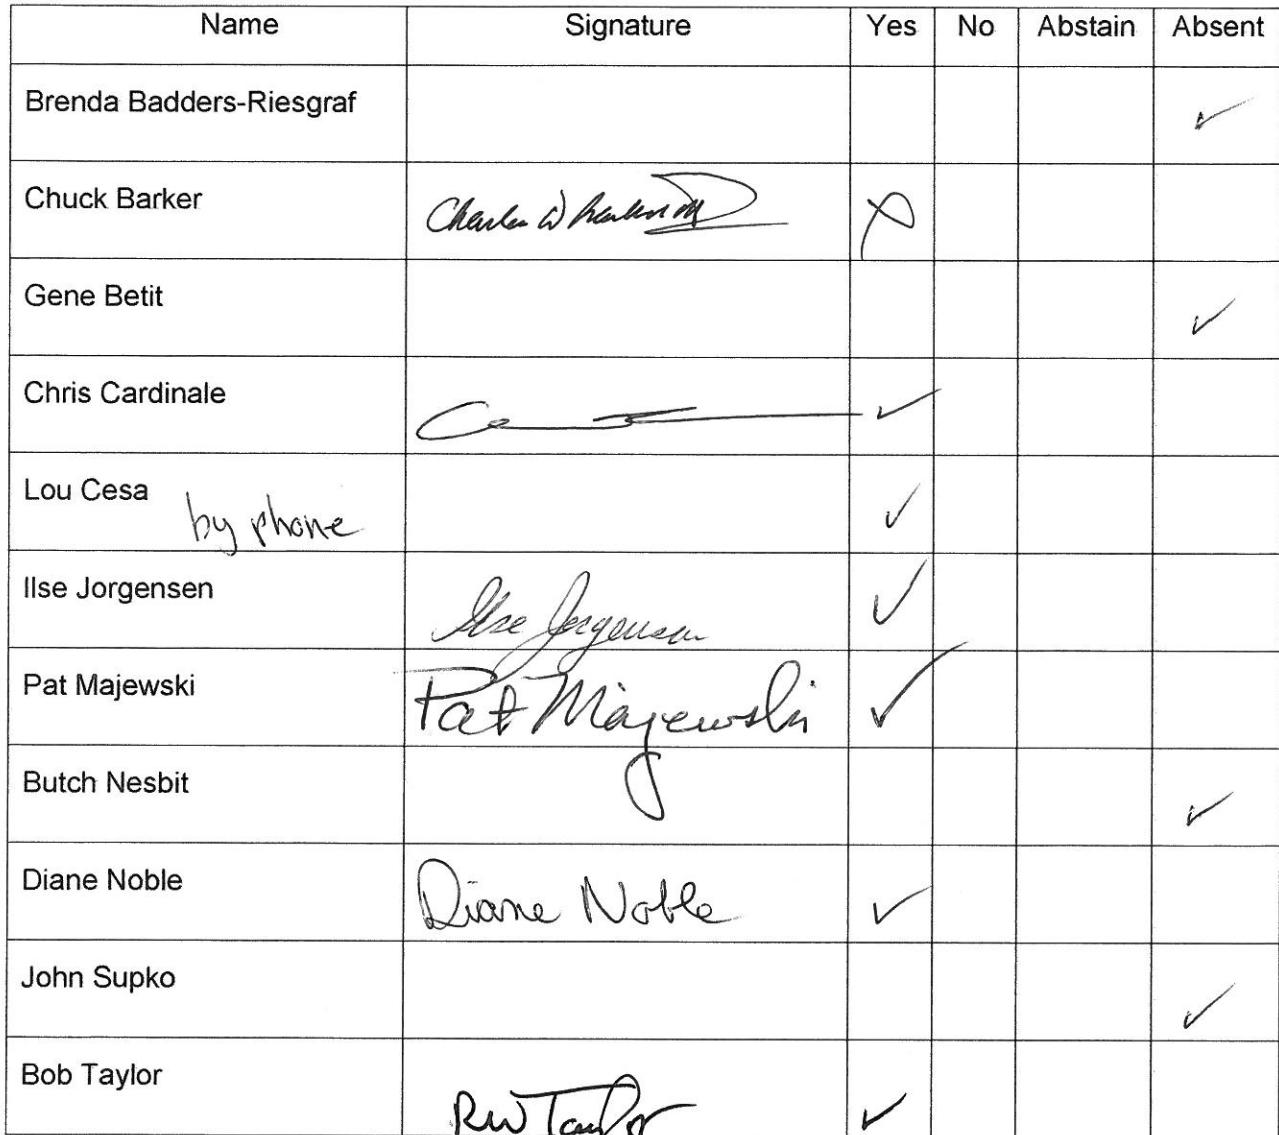 Name Signature Yes No Abstain Absent
Brenda Badders-Riesgraf ✓
Chuck Barker Charles W X
Gene Betit ✓
Chris Cardinale ✓
Lou Cesa by phone ✓
Ilse Jorgensen Ilse Jorgensen ✓
Pat Majewski Pat Majewski ✓
Butch Nesbit ✓
Diane Noble Diane Noble ✓
John Supko ✓
Bob Taylor RW Taylor ✓